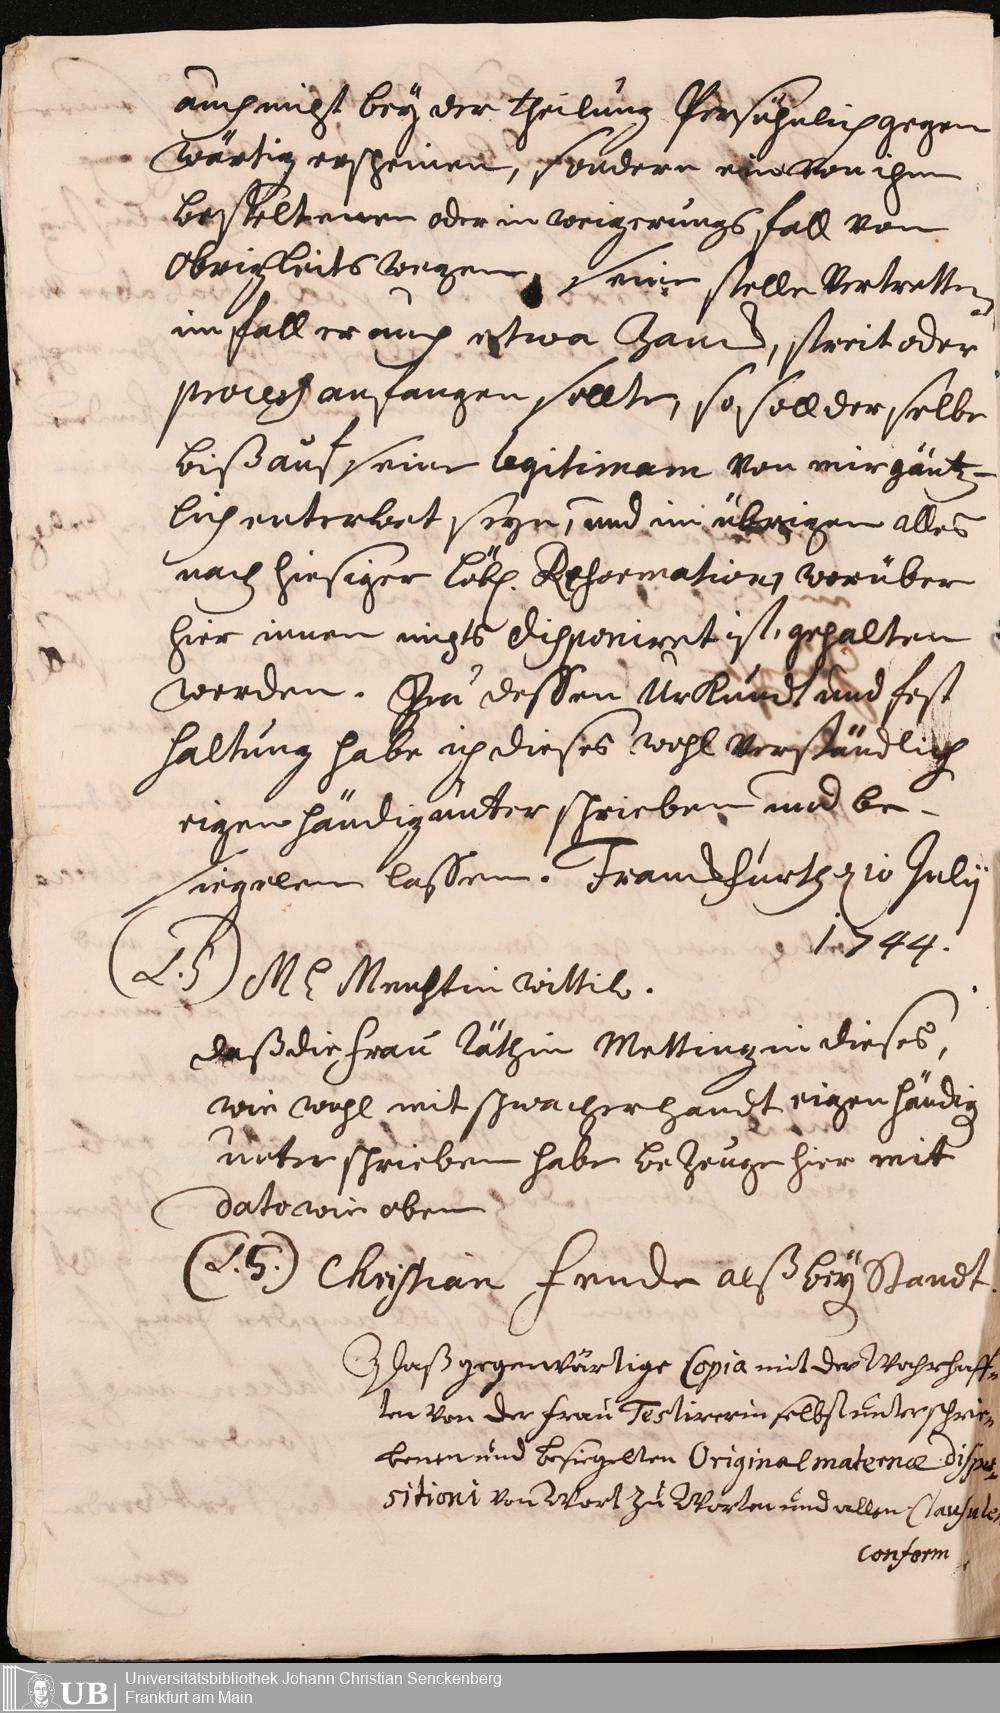 auch nicht bey der theilung Persöhnlich gegen
wärtig erscheinen, sondern ein von ihm
bestelt oder in weigerungs fall von
Obrigkeits wegen, seine stelle Vertretten,
im fall er auch etwa Zanck, streit oder
process anfangen sollte, so soll derselbe
biß auf seine legitimam von mir gäntz-
lich enterbet seyn, und im übrigen alles
nach hiesiger löbl. Reformation, worüber
hier innen nichts disponiret ist, gehalten
werden. Zu dessen Urkundt und fest
haltung habe ich dieses wohl verständlich
eigenhändig unter schrieben und be-
siegelen lassen. Franckfurth, 10 Julij
1744.
(L.S) wittib.
daß die Frau Räthin Mettingin dieses,
wie wohl mit schwacher handt eigen händig
unter schrieben habe beZeuge hier mit
dato wie oben
(L.S.) Christian alß bey Standt.
Daß gegenwärtige Copia mit der Wahrhaff-
ten von der Frau Testirerin selbst unterschrie-
benen und besiegelten Original maternæ dispo-
sitioni von Wort zu Worten und allen Clausulen
conform
Universitätsbibliothek Johann Christian Senckenberg
Frankfurt am Main
UB